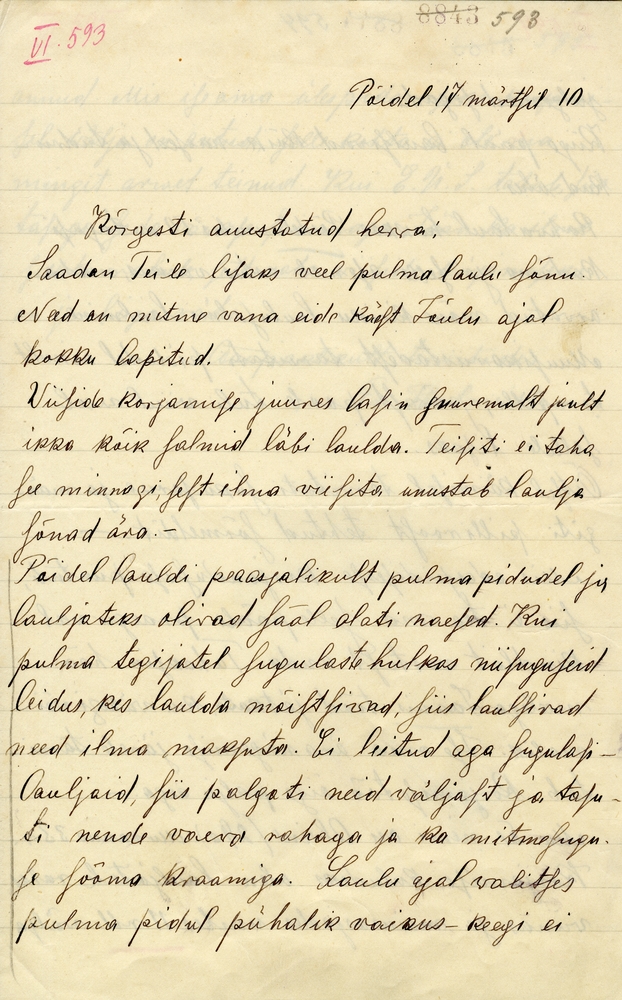 VI. 593
8843 593
Pöidel 17 märtsil 10
Kõrgesti auustatud herra!
Saadan Teile lisaks veel pulma laulu sõnu.
Need on mitme vana eide käest Jõulu ajal
kokku lapitud.
Viiside korjamise juures lasin suuremalt jault
ikka kõik salmid läbi laulda. Teisiti ei taha
see minnagi, sest ilma viisita unustab laulja
sõnad ära. –
Pöidel lauldi peaasjalikult pulma pidudel ja
lauljateks olivad sääl alati naesed. Kui
pulma tegijatel sugulaste hulkas niisuguseid
leidus, kes laulda mõistsivad, siis laulsivad
need ilma maksuta. Ei leitud aga sugulasi-
lauljaid, siis palgati neid väljast ja tasu-
ti nende vaeva rahaga ja ka mitmesugu-
se sööma kraamiga. Laulu ajal valitses
pulma pidul pühalik vaikus – keegi ei